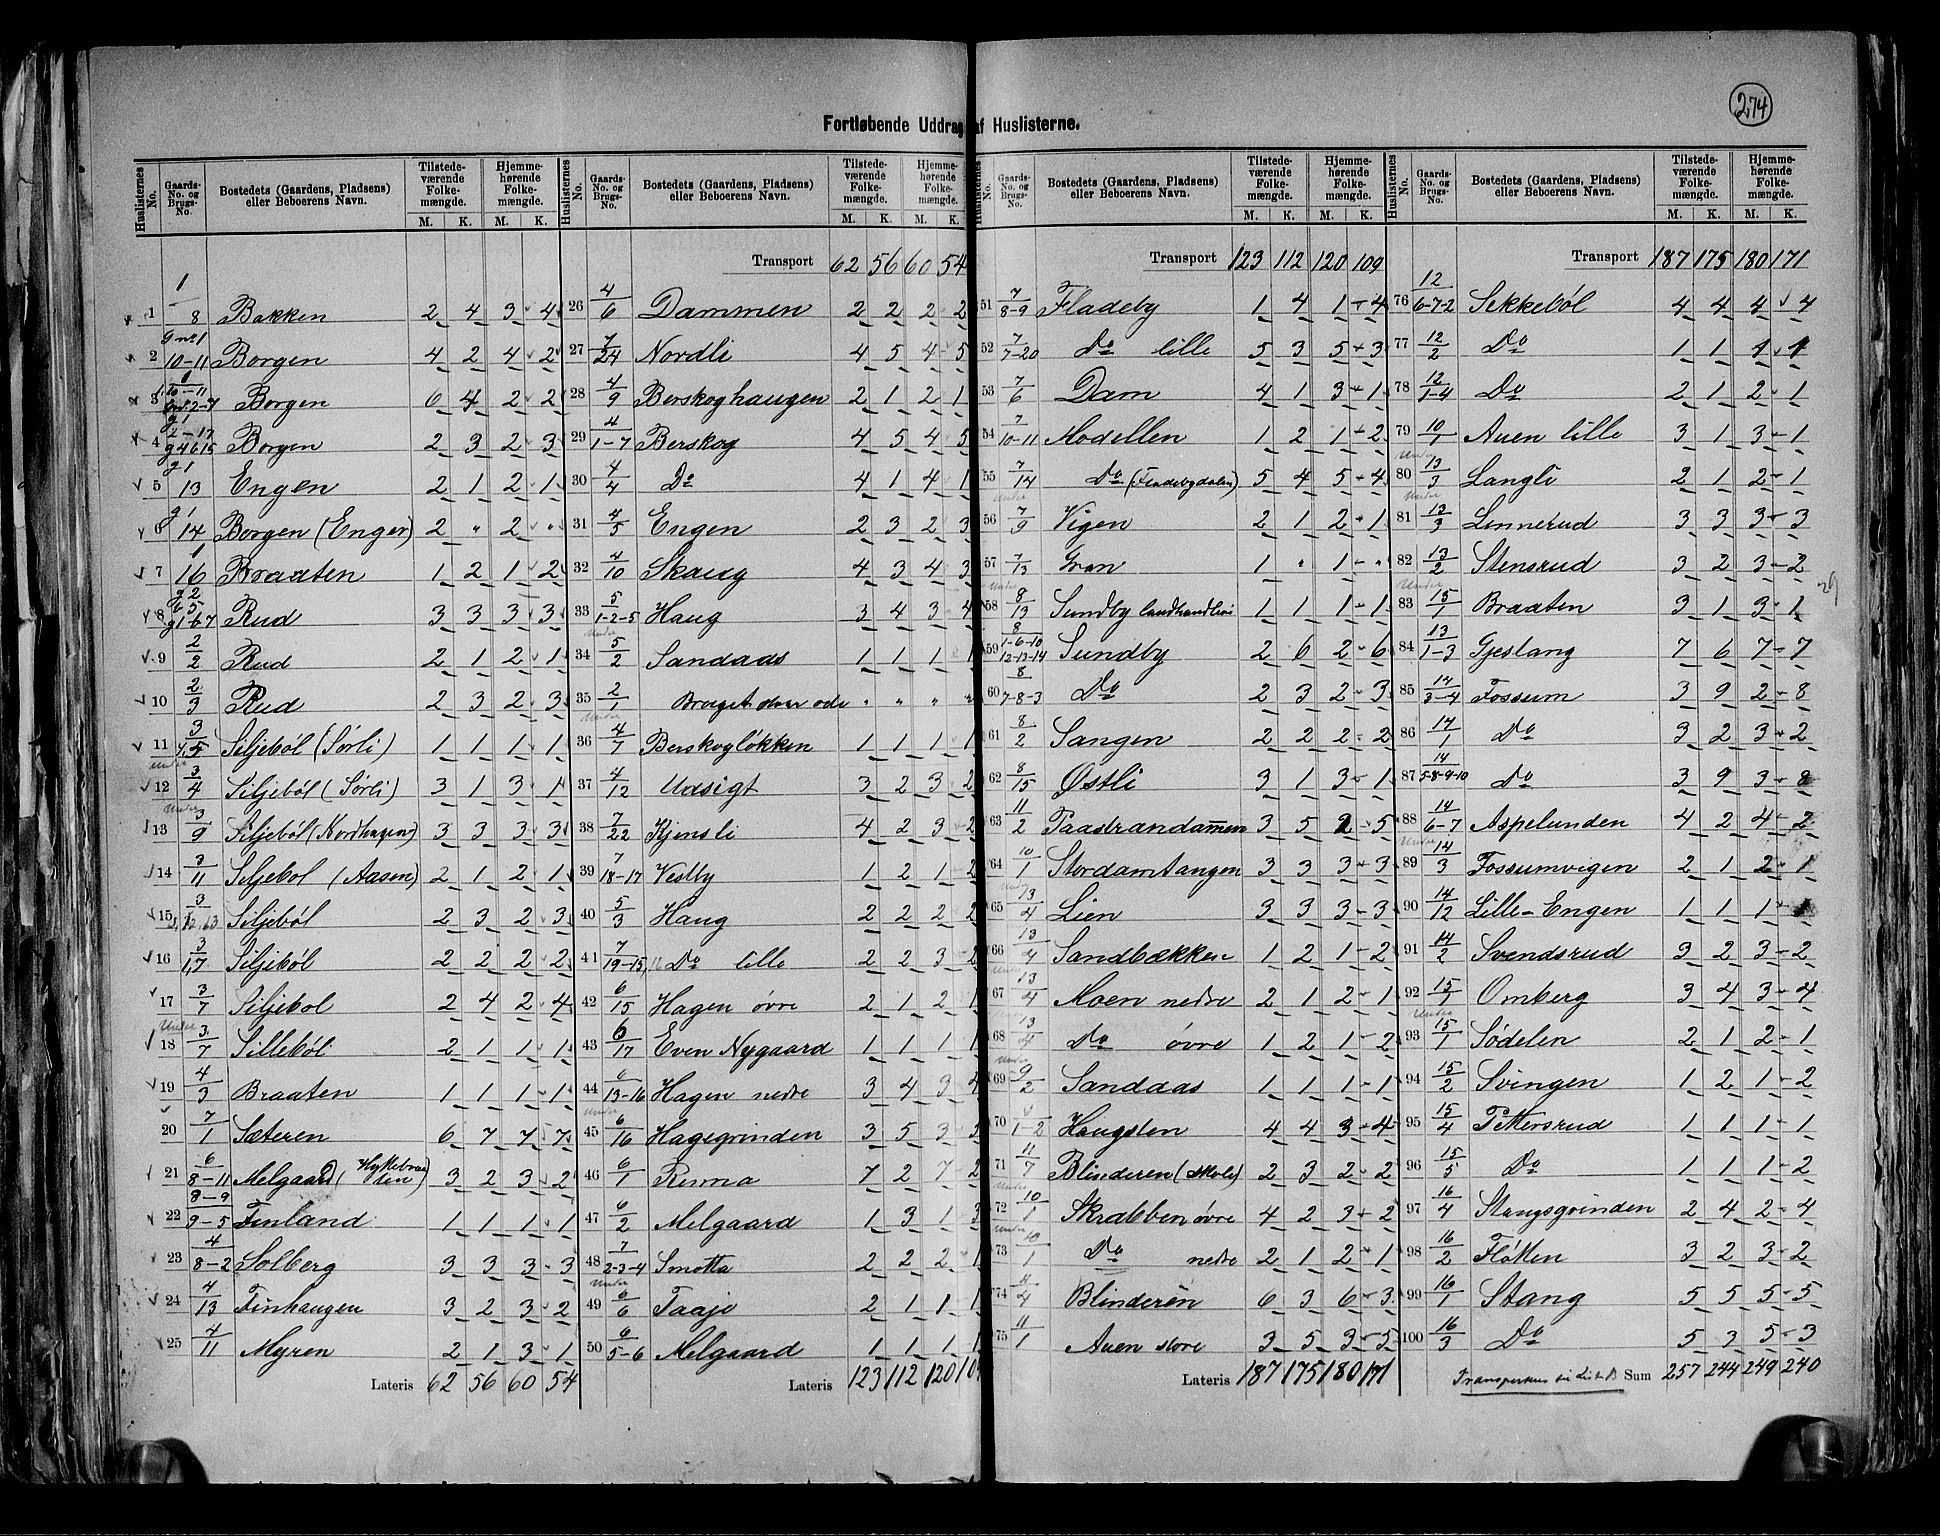 274
Fortløbende Uddrag af Huslisterne.
Huslisternes No. | Gaards-No. og Brugs-No. | Bostedets (Gaardens, Pladsens) eller Beboerens Navn. | Tilstedeværende Folkemængde. M. K. | Hjemmehørende Folkemængde. M. K.
1 | 1/8 | Bakken | 2 4 3 4
2 | g no 1 10-11 | Borgen | 4 2 4 2
3 | Borgen | 6 4 2 2
4 | Borgen | 2 3 2 3
5 | g 1 13 | Engen | 2 1 2 1
6 | g 1 14 | Borgen (Enger) | 2 " 2 "
7 | 1/16 | Braaten | 1 2 1 2
8 | Rud | 3 3 3 3
9 | 2/2 | Rud | 2 1 2 1
10 | 2/3 | Rud | 2 3 2 3
11 | 3/4,5 | Siljebøl (Sørli) | 1 1 1 1
12 | Under 3/4 | Siljebøl (Sørli) | 3 1 3 1
13 | Under 3/9 | Siljebøl (Nordhagen) | 3 3 3 3
14 | 3/11 | Siljebøl (Aasen) | 2 1 2 1
15 | Siljebøl | 2 3 2 3
16 | 3/1,7 | Siljebøl | 2 2 2 2
17 | 3/7 | Siljebøl | 2 4 2 4
18 | Under 3/7 | Sillebøl | 2 1 1 1
19 | 4/3 | Braaten | 1 1 1 1
20 | 7/1 | Sæteren | 6 7 7 7
21 | 6/8-11 | Melgaard | 3 2 3 2
22 | 8-9/9-5 | Finland | 1 1 1 1
23 | 4/8-2 | Solberg | 3 3 3 3
24 | 4/13 | Finhaugen | 3 2 3 2
25 | 4/11 | Myren | 2 1 3 1
Lateris 62 56 60 54
Huslisternes No. | Gaards-No. og Brugs-No. | Bostedets (Gaardens, Pladsens) eller Beboerens Navn. | Tilstedeværende Folkemængde. M. K. | Hjemmehørende Folkemængde. M. K.
Transport 62 56 60 54
26 | 4/6 | Dammen | 2 2 2 2
27 | 7/24 | Nordli | 4 5 4 5
28 | 4/9 | Berskoghaugen | 2 1 2 1
29 | 4/1-7 | Berskog | 4 5 4 5
30 | 4/4 | Do | 4 1 4 1
31 | 4/5 | Engen | 2 3 2 3
32 | 4/10 | Skaug | 4 3 4 3
33 | 5/1-2-5 | Haug | 3 4 3 4
34 | Under 5/2 | Sandaas | 1 1 1 1
35 | 2/1 | " " " "
36 | Under 4/7 | Berskogløkken | 1 1 1 1
37 | 4/12 | Udsigt | 3 2 3 2
38 | 7/22 | Kjensli | 4 2 3 2
39 | 7/18-17 | Vestby | 1 2 1 2
40 | 5/3 | Haug | 2 2 2 2
41 | 7/19-15 | Do lille | 2 2 3 2
42 | 6/15 | Hagen øvre | 2 1 2 1
43 | 6/17 | Even Nygaard | 1 1 1 1
44 | 6/13-16 | Hagen nedre | 3 4 3 4
45 | Under 6/16 | Hagegrinden | 3 5 3
46 | 6/1 | Rema | 7 2 7 2
47 | 6/2 | Melgaard | 1 3 1 3
48 | 7/2-3-4 | Smotta | 2 2 2 1
49 | Under 6/6 | Taajo | 2 1 1 1
50 | 6/5-6 | Melgaard | 1 1 1 1
Lateris 123 112 120 109
Huslisternes No. | Gaards-No. og Brugs-No. | Bostedets (Gaardens, Pladsens) eller Beboerens Navn. | Tilstedeværende Folkemængde. M. K. | Hjemmehørende Folkemængde. M. K.
Transport 123 112 120 109
51 | 7/8-9 | Fladeby | 1 4 1 4
52 | 7/7-20 | Do lille | 5 3 5 3
53 | 7/6 | Dam | 4 1 3 1
54 | 7/10-11 | Modellen | 1 2 1 2
55 | 7/14 | Do (Fladebydalen) | 5 4 5 4
56 | Under 7/9 | Vigen | 2 1 2 1
57 | 7/13 | Gran | 1 " 1 "
58 | Under 8/13 | Sundby landhandleri | 1 1 1 1
59 | 8/1-6-10 12-13-14 | Sundby | 2 6 2 6
60 | 8/7-8-3 | Do | 2 3 2 3
61 | 8/2 | Sangen | 2 2 2 2
62 | 8/15 | Østli | 3 1 3 1
63 | 11/2 | Taastrandammen | 3 5 2 5
64 | 10/1 | Stordamtangen | 3 3 3 3
65 | Under 13/4 | Lien | 3 3 3 3
66 | 13/4 | Sandbækken | 1 2 1 2
67 | 13/4 | Moen nedre | 2 1 2 1
68 | 13/4 | Do øvre | 1 2 1 2
69 | Under 9/2 | Sandaas | 1 1 1 1
70 | 1-2 | Haugsten | 4 4 3 4
71 | 11/7 | Blinderen (skole) | 2 3 2 2
72 | 10/1 | Skrabben øvre | 4 2 3 2
73 | Under 10/1 | Do nedre | 2 1 2 1
74 | 11/4 | Blinderen | 6 3 6 3
75 | 11/1 | Auen store | 3 5 3 5
Lateris 187 175 180 171
Huslisternes No. | Gaards-No. og Brugs-No. | Bostedets (Gaardens, Pladsens) eller Beboerens Navn. | Tilstedeværende Folkemængde. M. K. | Hjemmehørende Folkemængde. M. K.
Transport 187 175 180 171
76 | 12/6-7-2 | Sekkebøl | 4 4 4 4
77 | 12/2 | Do | 1 1 1 1
78 | 12/1-4 | Do | 2 1 2 1
79 | 10/1 | Auen lille | 3 1 3 1
80 | Under 13/3 | Langli | 2 1 2 1
81 | Under 13/3 | Linnerud | 3 3 3 3
82 | 13/2 | Stensrud | 3 2 3 2
83 | Under 15/1 | Braaten | 3 1 3 1
84 | 13/1-3 | Gjeslang | 7 6 7 7
85 | 14/3-4 | Fossum | 3 9 2 8
86 | 14/1 | Do | 3 2 3 2
87 | 14/5-8-9-10 | Do | 3 9 3 8
88 | 14/6-7 | Aspelunden | 4 2 4 2
89 | Under 14/3 | Fossumvigen | 2 1 2 1
90 | 14/12 | Lille-Engen | 1 1 1 1
91 | 14/2 | Svendsrud | 3 2 3 2
92 | 15/1 | Omberg | 3 4 3 4
93 | Under 15/1 | Sødelen | 2 1 2 1
94 | 15/2 | Svingen | 1 2 1 2
95 | 15/4 | Pettersrud | 1 1 1 1
96 | 15/5 | Do | 1 1 1 2
97 | 16/4 | Stangsgrinden | 2 4 2 4
98 | 16/2 | Fløtten | 3 2 3 2
99 | 16/1 | Stang | 5 5 5 5
100 | 16/3 | Do | 5 3 5 3
Sum 257 244 249 240